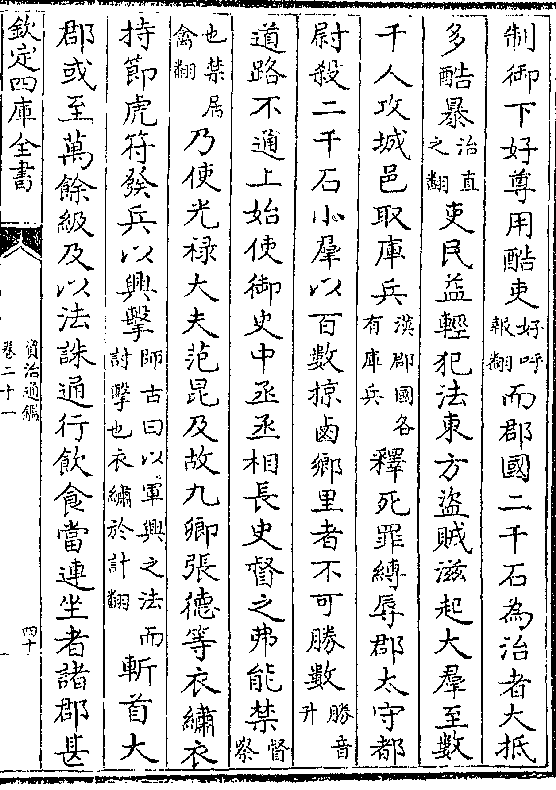 制御下好尊用酷吏好呼報翻而郡國二千石為治者大抵
多酷暴治直之翻吏民益輕犯法東方盜賊滋起大羣至數
千人攻城邑取庫兵漢郡國各有庫兵釋死罪縛辱郡太守都
尉殺二千石小羣以百數掠鹵鄉里者不可勝數勝音升
道路不通上始使御史中丞丞相長史督之弗能禁督察
也禁居禽翻乃使光禄大夫范昆及故九卿張德等衣繡衣
持節虎符發兵以興擊師古曰以軍興之法討擊也衣繡於計翻而斬首大
郡或至萬餘級及以法誅通行飲食當連坐者諸郡甚
欽定四庫全書
資治通鑑
卷二十一
四十